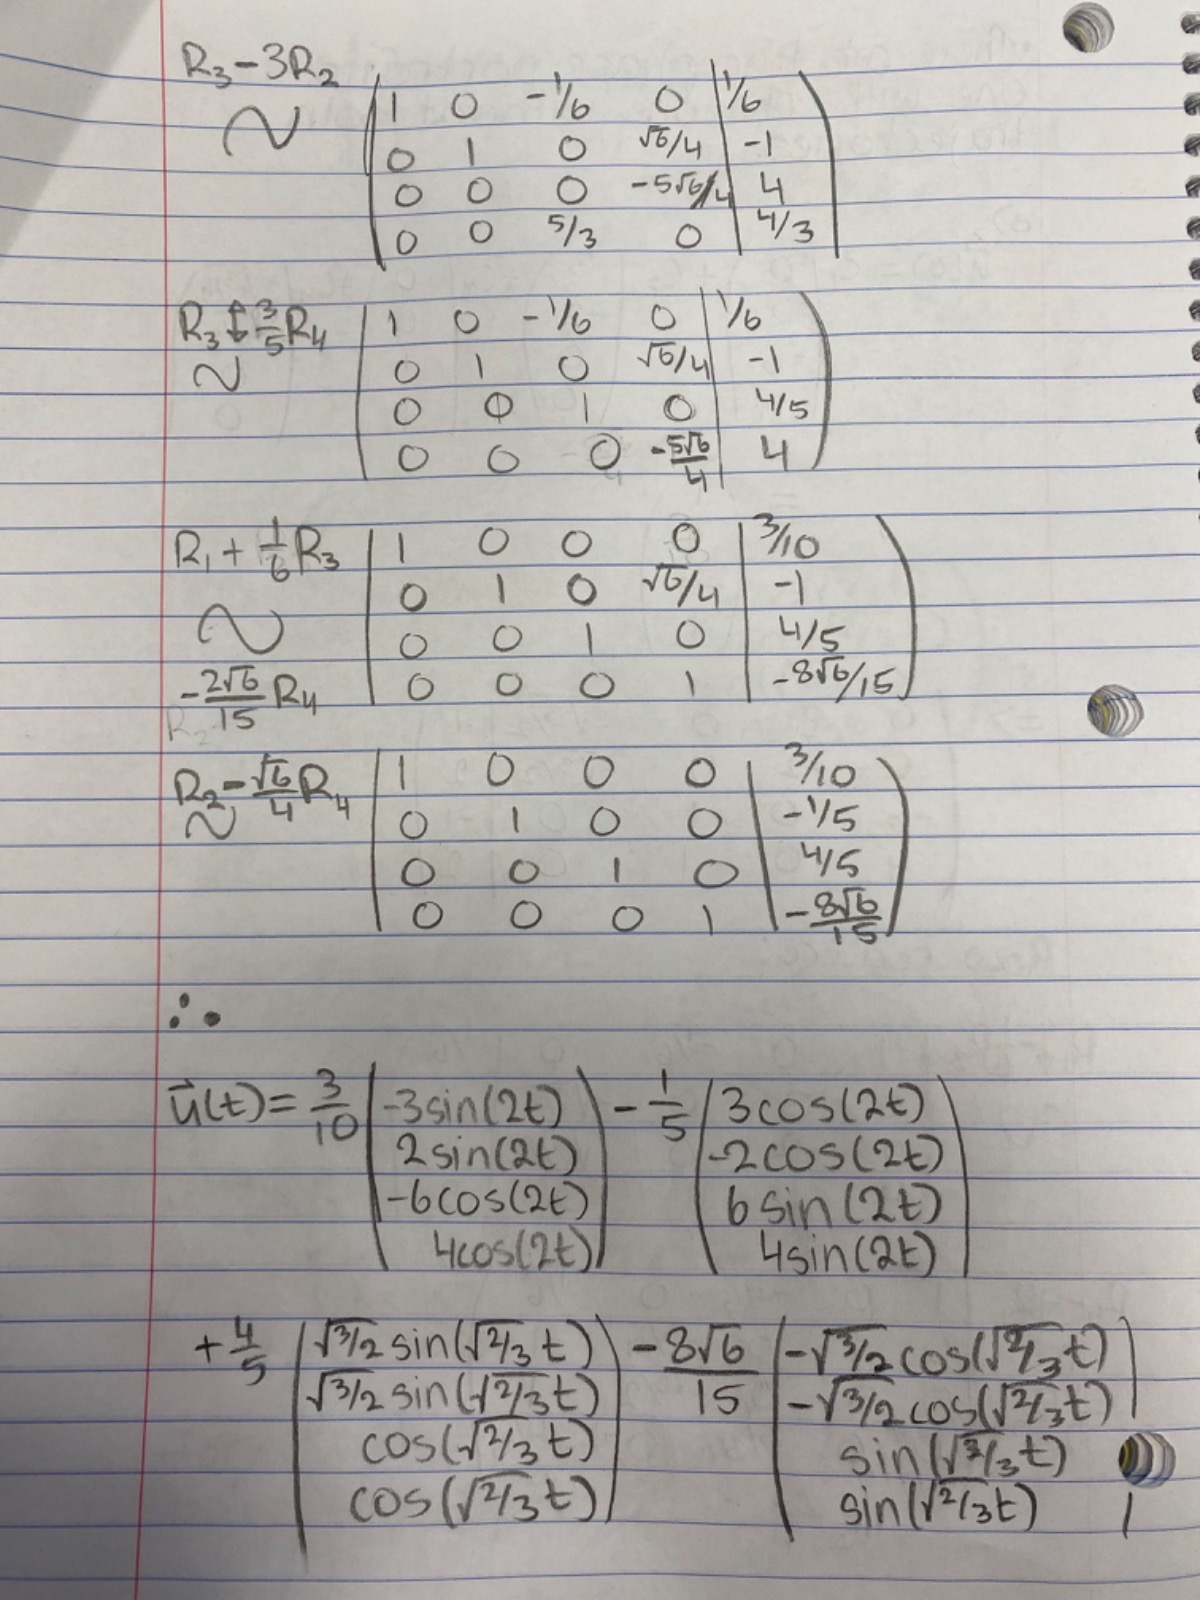 R₃-3R₂
~
1 0 -1/6 0 | 1/6
0 1 0 √6/4 | -1
0 0 0 -5√6/4 | 4
0 0 5/3 0 | 4/3
R₃ ↕ 3/5 R₄
~
1 0 -1/6 0 | 1/6
0 1 0 √6/4 | -1
0 0 1 0 | 4/5
0 0 0 -5√6/4 | 4
R₁ + 1/6 R₃
~
-2√6/15 R₄
1 0 0 0 | 3/10
0 1 0 √6/4 | -1
0 0 1 0 | 4/5
0 0 0 1 | -8√6/15
R₂ - √6/4 R₄
~
1 0 0 0 | 3/10
0 1 0 0 | -1/5
0 0 1 0 | 4/5
0 0 0 1 | -8√6/15
∴
u⃗(t) = 3/10 | -3sin(2t) | - 1/5 | 3cos(2t) |
2sin(2t) | -2cos(2t)
-6cos(2t) | 6sin(2t)
4cos(2t) | 4sin(2t)
+ 4/5 | √3/2 sin(√2/3 t) | - 8√6/15 | -√3/2 cos(√2/3 t) |
√3/2 sin(√2/3 t) | -√3/2 cos(√2/3 t)
cos(√2/3 t) | sin(√2/3 t)
cos(√2/3 t) | sin(√2/3 t)